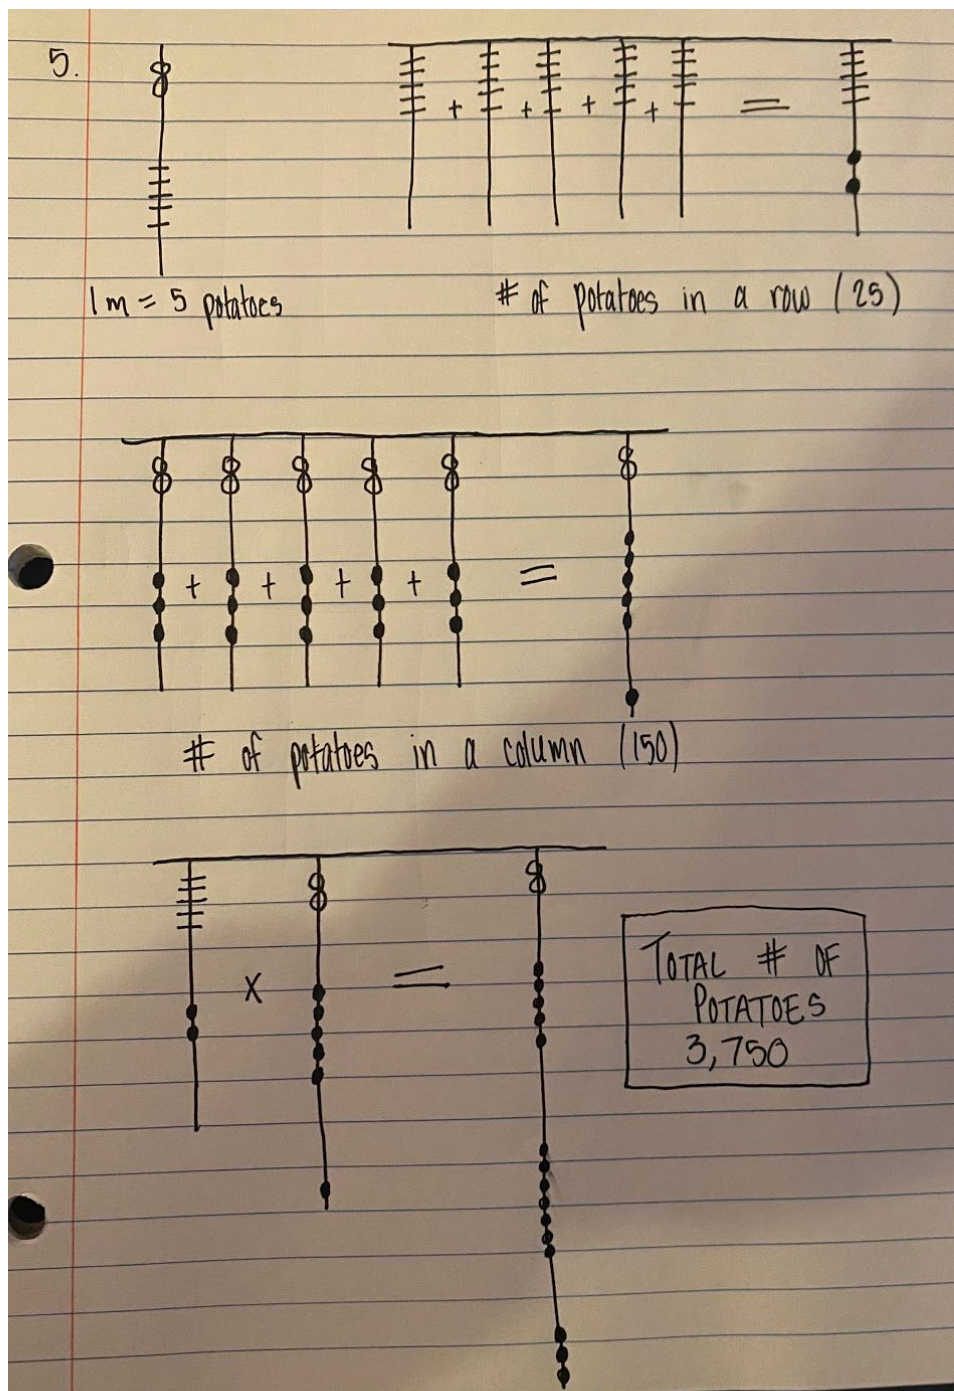 5.
+ + + + =
1 m = 5 potatoes
# of potatoes in a row (25)
8 8 8 8 8 8
+ + + + =
# of potatoes in a column (150)
x =
TOTAL # OF
POTATOES
3,750